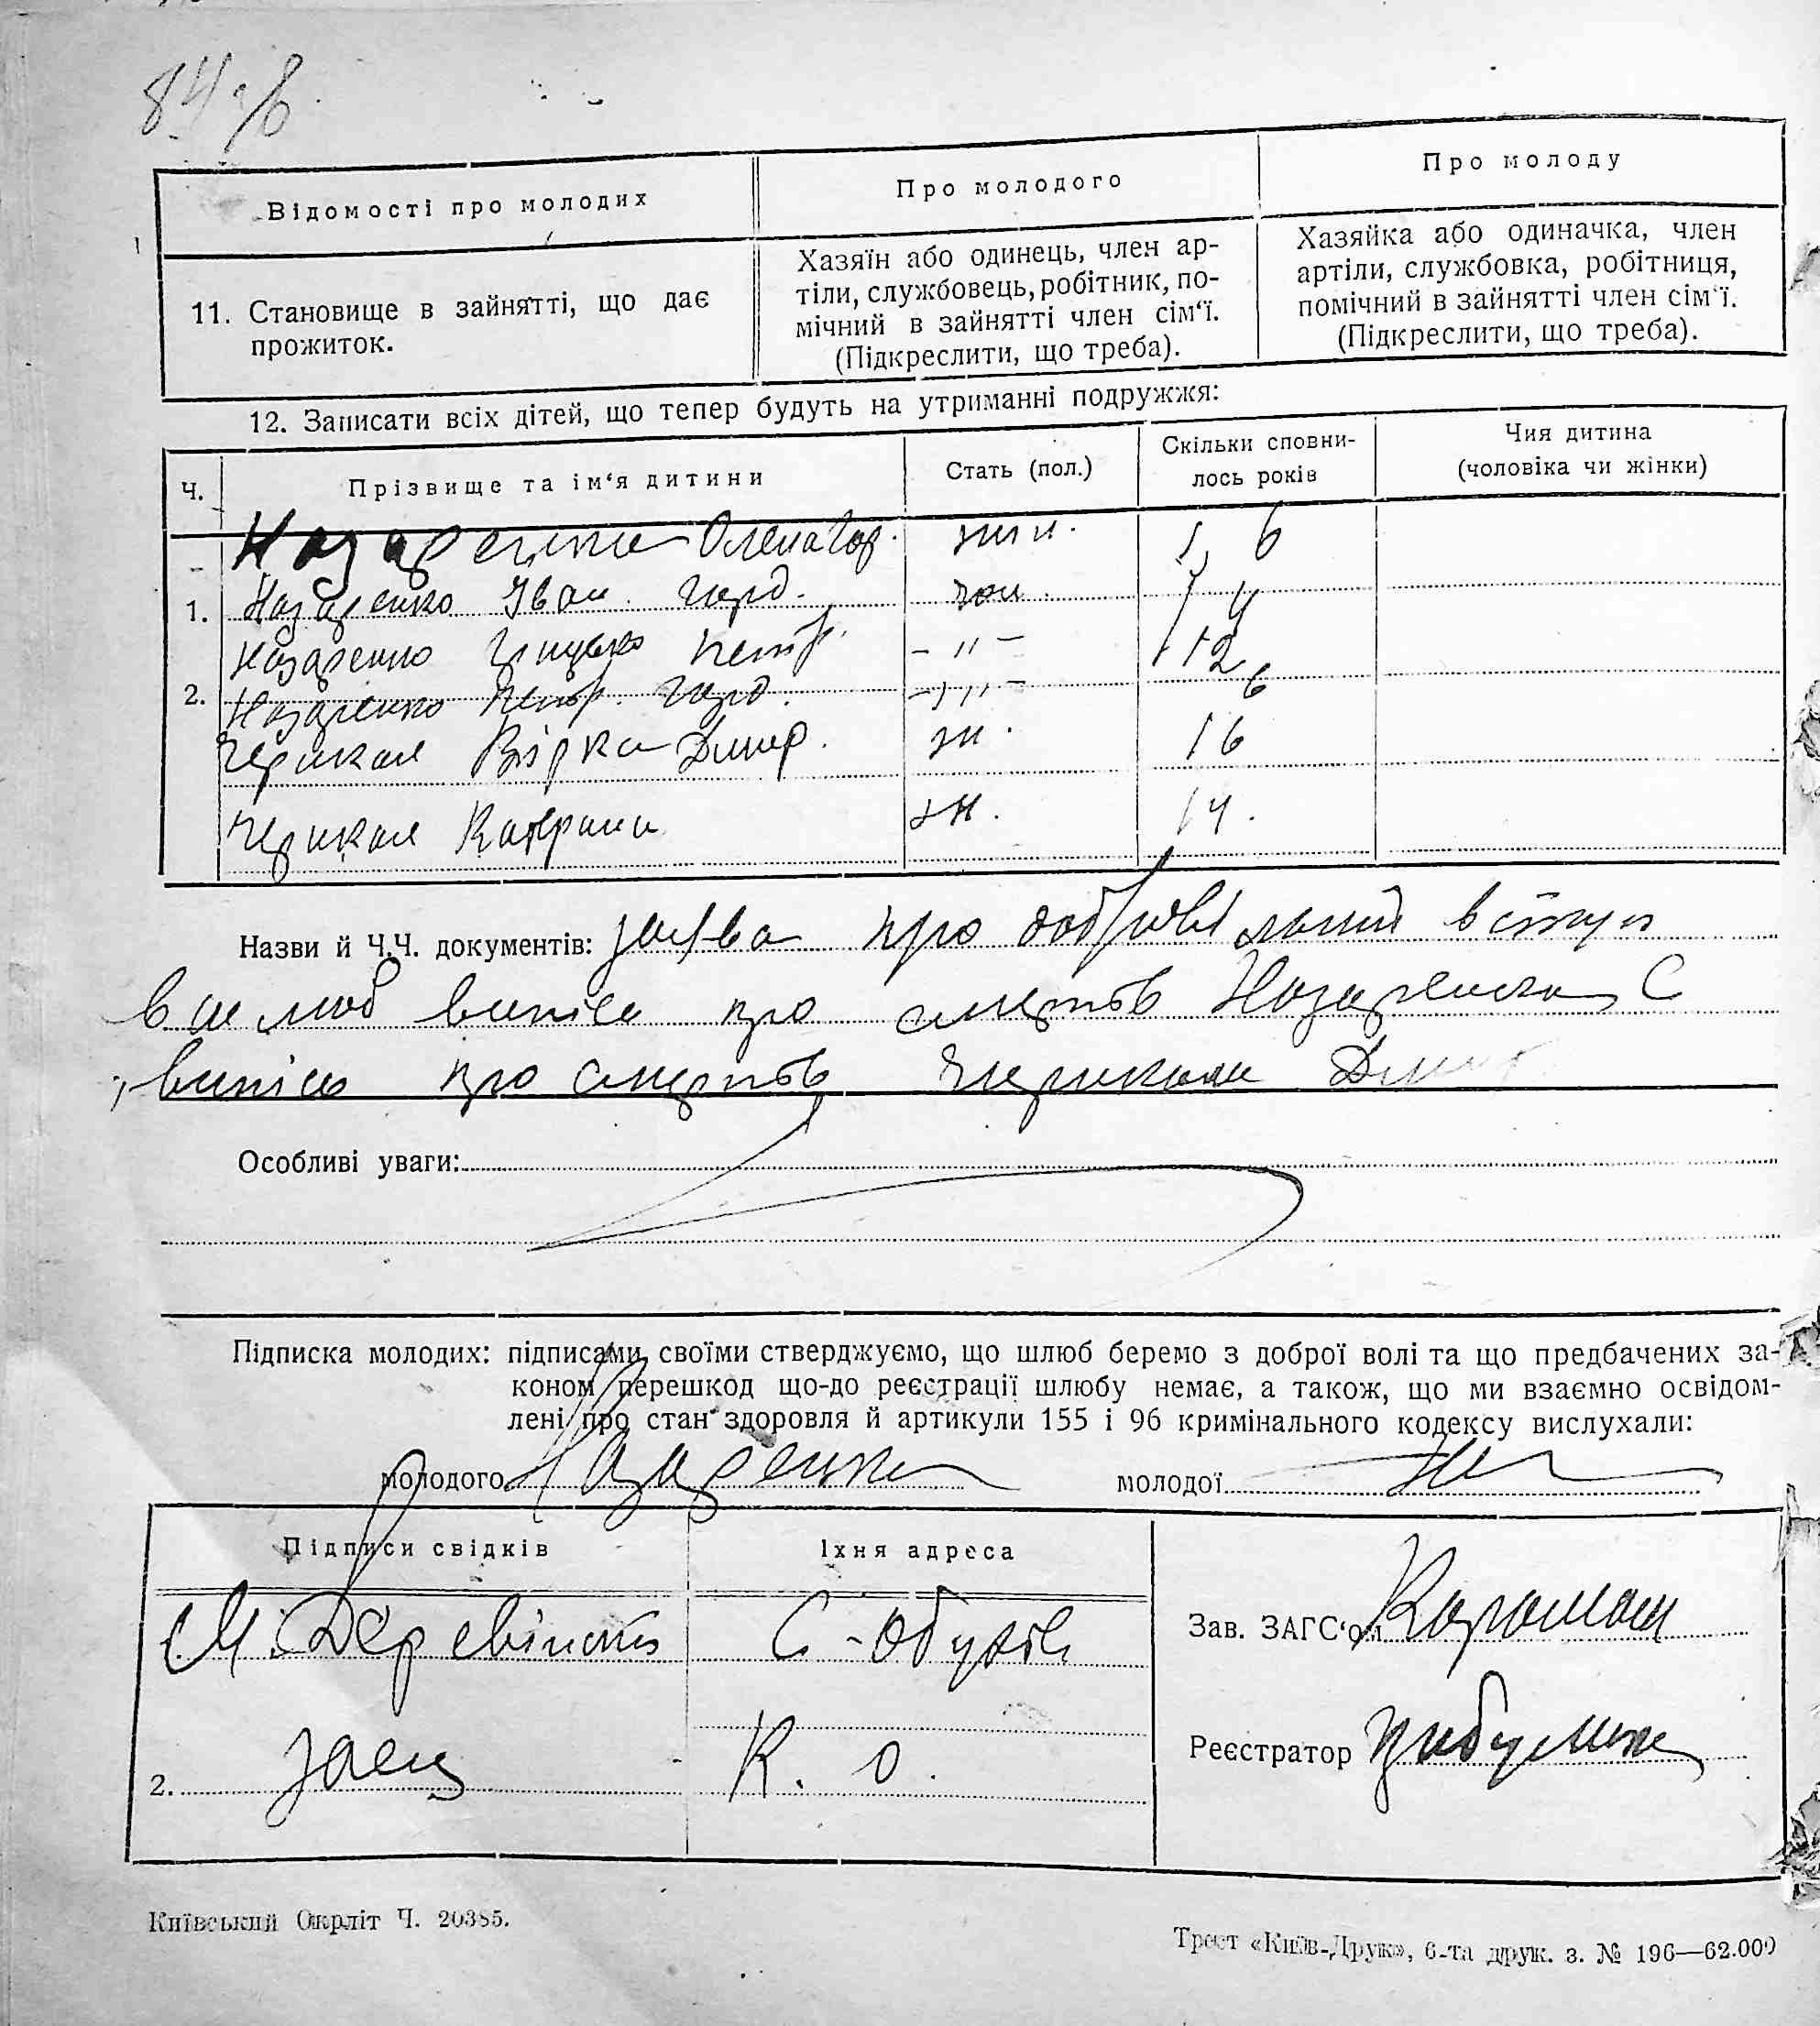 84 зв.
Відомості про молодих
Про молодого
Про молоду
11. Становище в зайнятті, що дає
прожиток.
Хазяїн або одинець, член ар-
тіли, службовець, робітник, по-
мічний в зайнятті член сім‘ї.
(Підкреслити, що треба).
Хазяйка або одиначка, член
артіли, службовка, робітниця,
помічний в зайнятті член сім‘ї.
(Підкреслити, що треба).
12. Записати всіх дітей, що тепер будуть на утриманні подружжя:
Ч.
Прізвище та ім‘я дитини
Стать (пол.)
Скільки сповни-
лось років
Чия дитина
(чоловіка чи жінки)
Назаренко Олена жін. 6
1. Назаренко Іван Горд. чол.
Назаренко Грицько Петр. – " – 12
2. Назаренко Петр. Горд. – " – 6
Вірка Дмир. ж. 16
Катрина ж. 14.
Назви й Ч.Ч. документів: заява про добровільний вступ
в шлюб випісь про смерть Назаренка С
випісь про смерть
Особливі уваги:
Підписка молодих: підписами своїми стверджуємо, що шлюб беремо з доброї волі та що предбачених за-
коном перешкод що-до реєстрації шлюбу немає, а також, що ми взаємно освідом-
лені про стан здоровля й артикули 155 і 96 кримінального кодексу вислухали:
молодого Назаренко молодої
Підписи свідків
Їхня адреса
М. Деревінко С-Обухів
Зав. ЗАГС‘ом
2. Заєц К. О.
Реєстратор
Київський Окрліт Ч. 20385.
Трест «Київ-Друк», 6-та друк. з. № 196—62.000